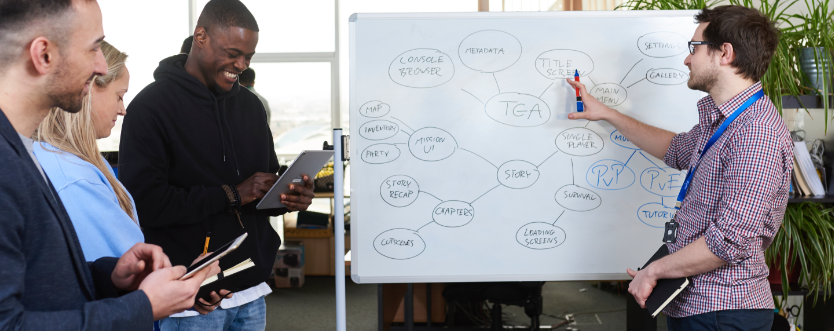 CONSOLE
BROWSER
METADATA
TITLE
SCREEN
SETTINGS
GALLERY
MAIN
MENU
TEA
MAP
INVENTORY
PARTY
MISSION
UI
SINGLE
PLAYER
STORY
PVP
PVE
STORY
RECAP
CHAPTERS
SURVIVAL
TUTOR
CUTSCENES
LOADING
SCREENS